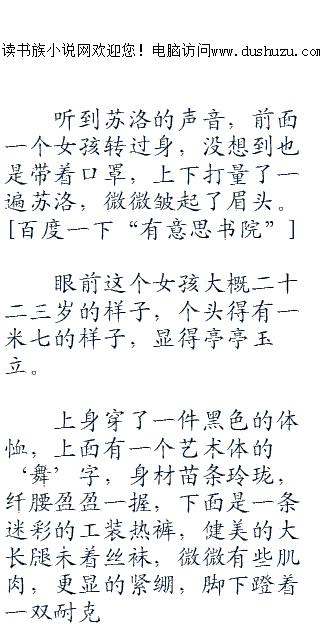 读书族小说网欢迎您！电脑访问www.dushuzu.com
听到苏洛的声音，前面
一个女孩转过身，没想到也
是带着口罩，上下打量了一
遍苏洛，微微皱起了眉头。
[百度一下“有意思书院”]
眼前这个女孩大概二十
二三岁的样子，个头得有一
米七的样子，显得亭亭玉
立。
上身穿了一件黑色的体
恤，上面有一个艺术体的
‘舞’字，身材苗条玲珑，
纤腰盈盈一握，下面是一条
迷彩的工装热裤，健美的大
长腿未着丝袜，微微有些肌
肉，更显的紧绷，脚下蹬着
一双耐克